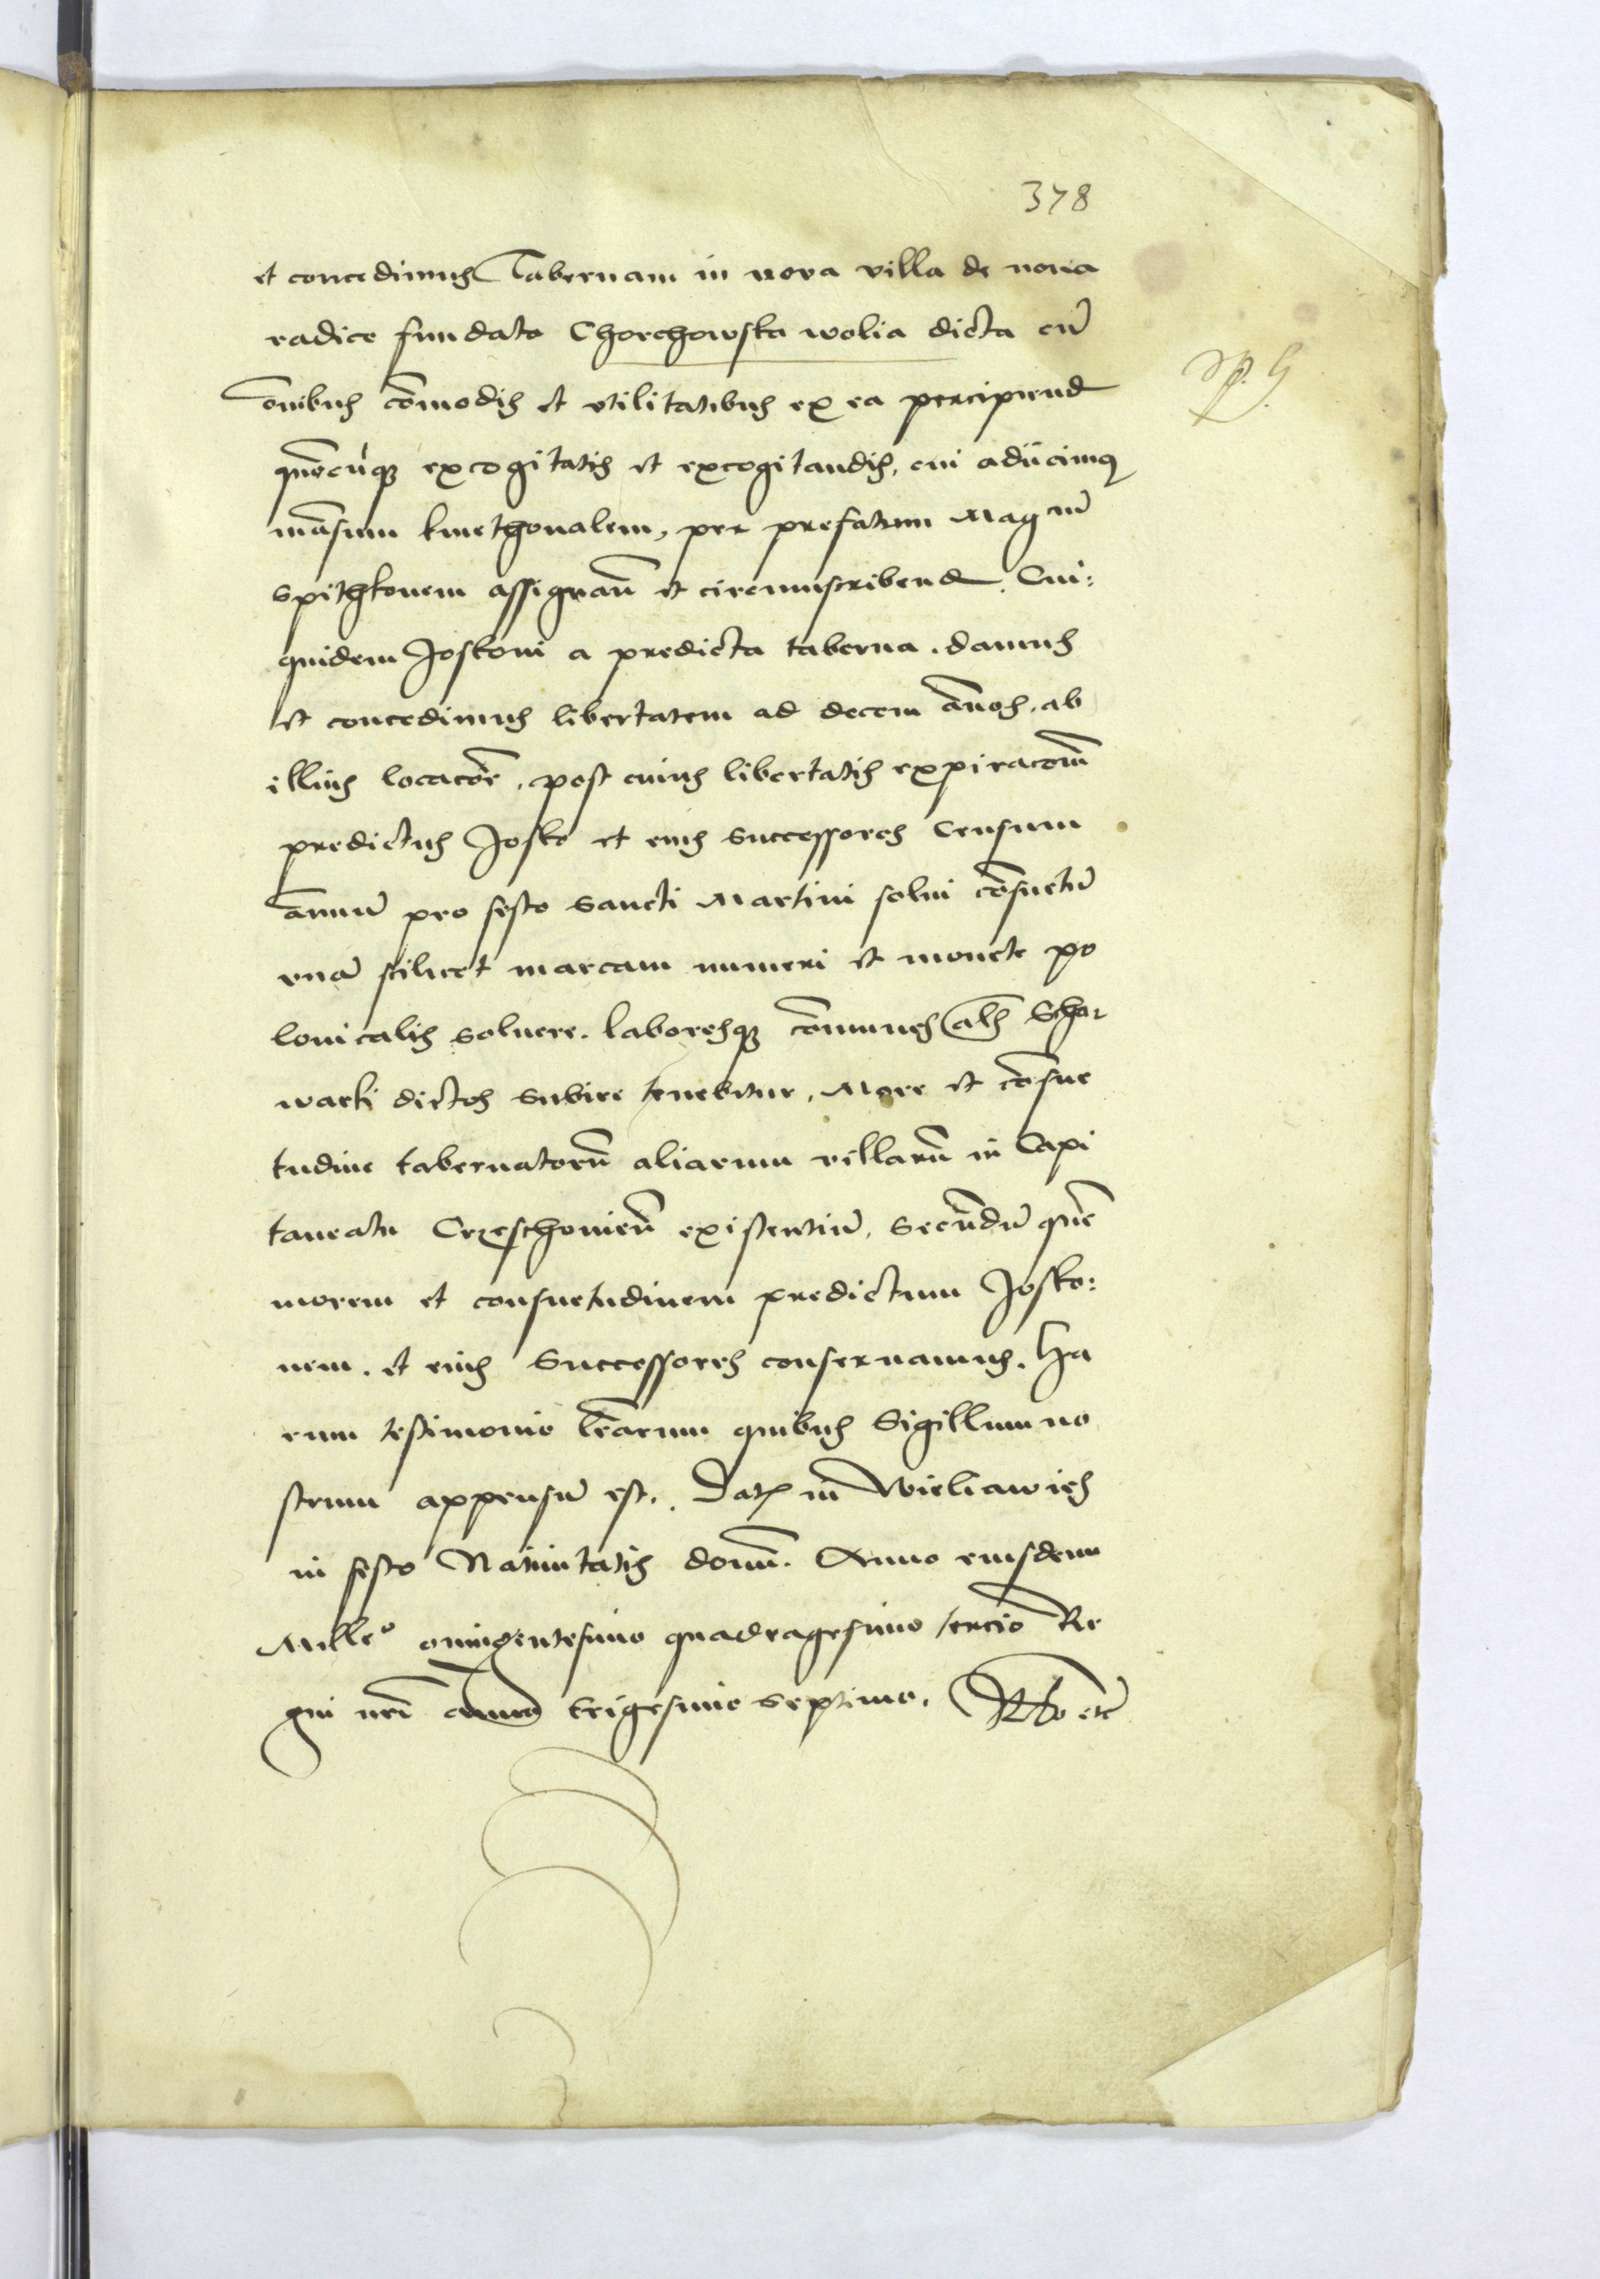 378
et concedimus Tabernam in nova villa de noua
radice fundata Chorchowska wolia dicta cu̅
o̅nibus co̅modis et vtilitatibus ex ea percipiend
quo̅cu̅qz excogitatis et excogitandis, cui adiicimus
ma̅sum kmethonalem, per prefatum Mag cu̅
Spithkonem assignan̅ et circumscribend. Cui:
quidem Joskoni a predicta taberna. damus
et concedimus libertatem ad decem an̅os, ab
illius locaco̅e, post cuius libertatis expiraco̅m
predictus Josko et eius successores Censum
an̅uu̅ pro festo Sancti Martini solui co̅suetu̅
vna̅ scilicet marcam numeri et monete po
lonicalis soluere. laboresqz co̅munes als Schar
warki dictos subire tenebitur, More et co̅sue
tudine tabernatoru̅ aliarum villaru̅ in Capi
taneatu Crzeschouien̅ existentiu̅, secundu̅ que̅
morem et consuetudinem predictum Josko:
nem. et eius Successores conseruamus. Ha
rum testimonio l̅r̅arum quibus Sigillum no
strum appensu̅ est. Dat in Wieliawies
in festo Natiuitatis domi̅. Anno eiusdem
Mill̅o quingentesimo quadragesimo tercio Re
gni nr̅i anno trigesimo septimo. Rto etc̅